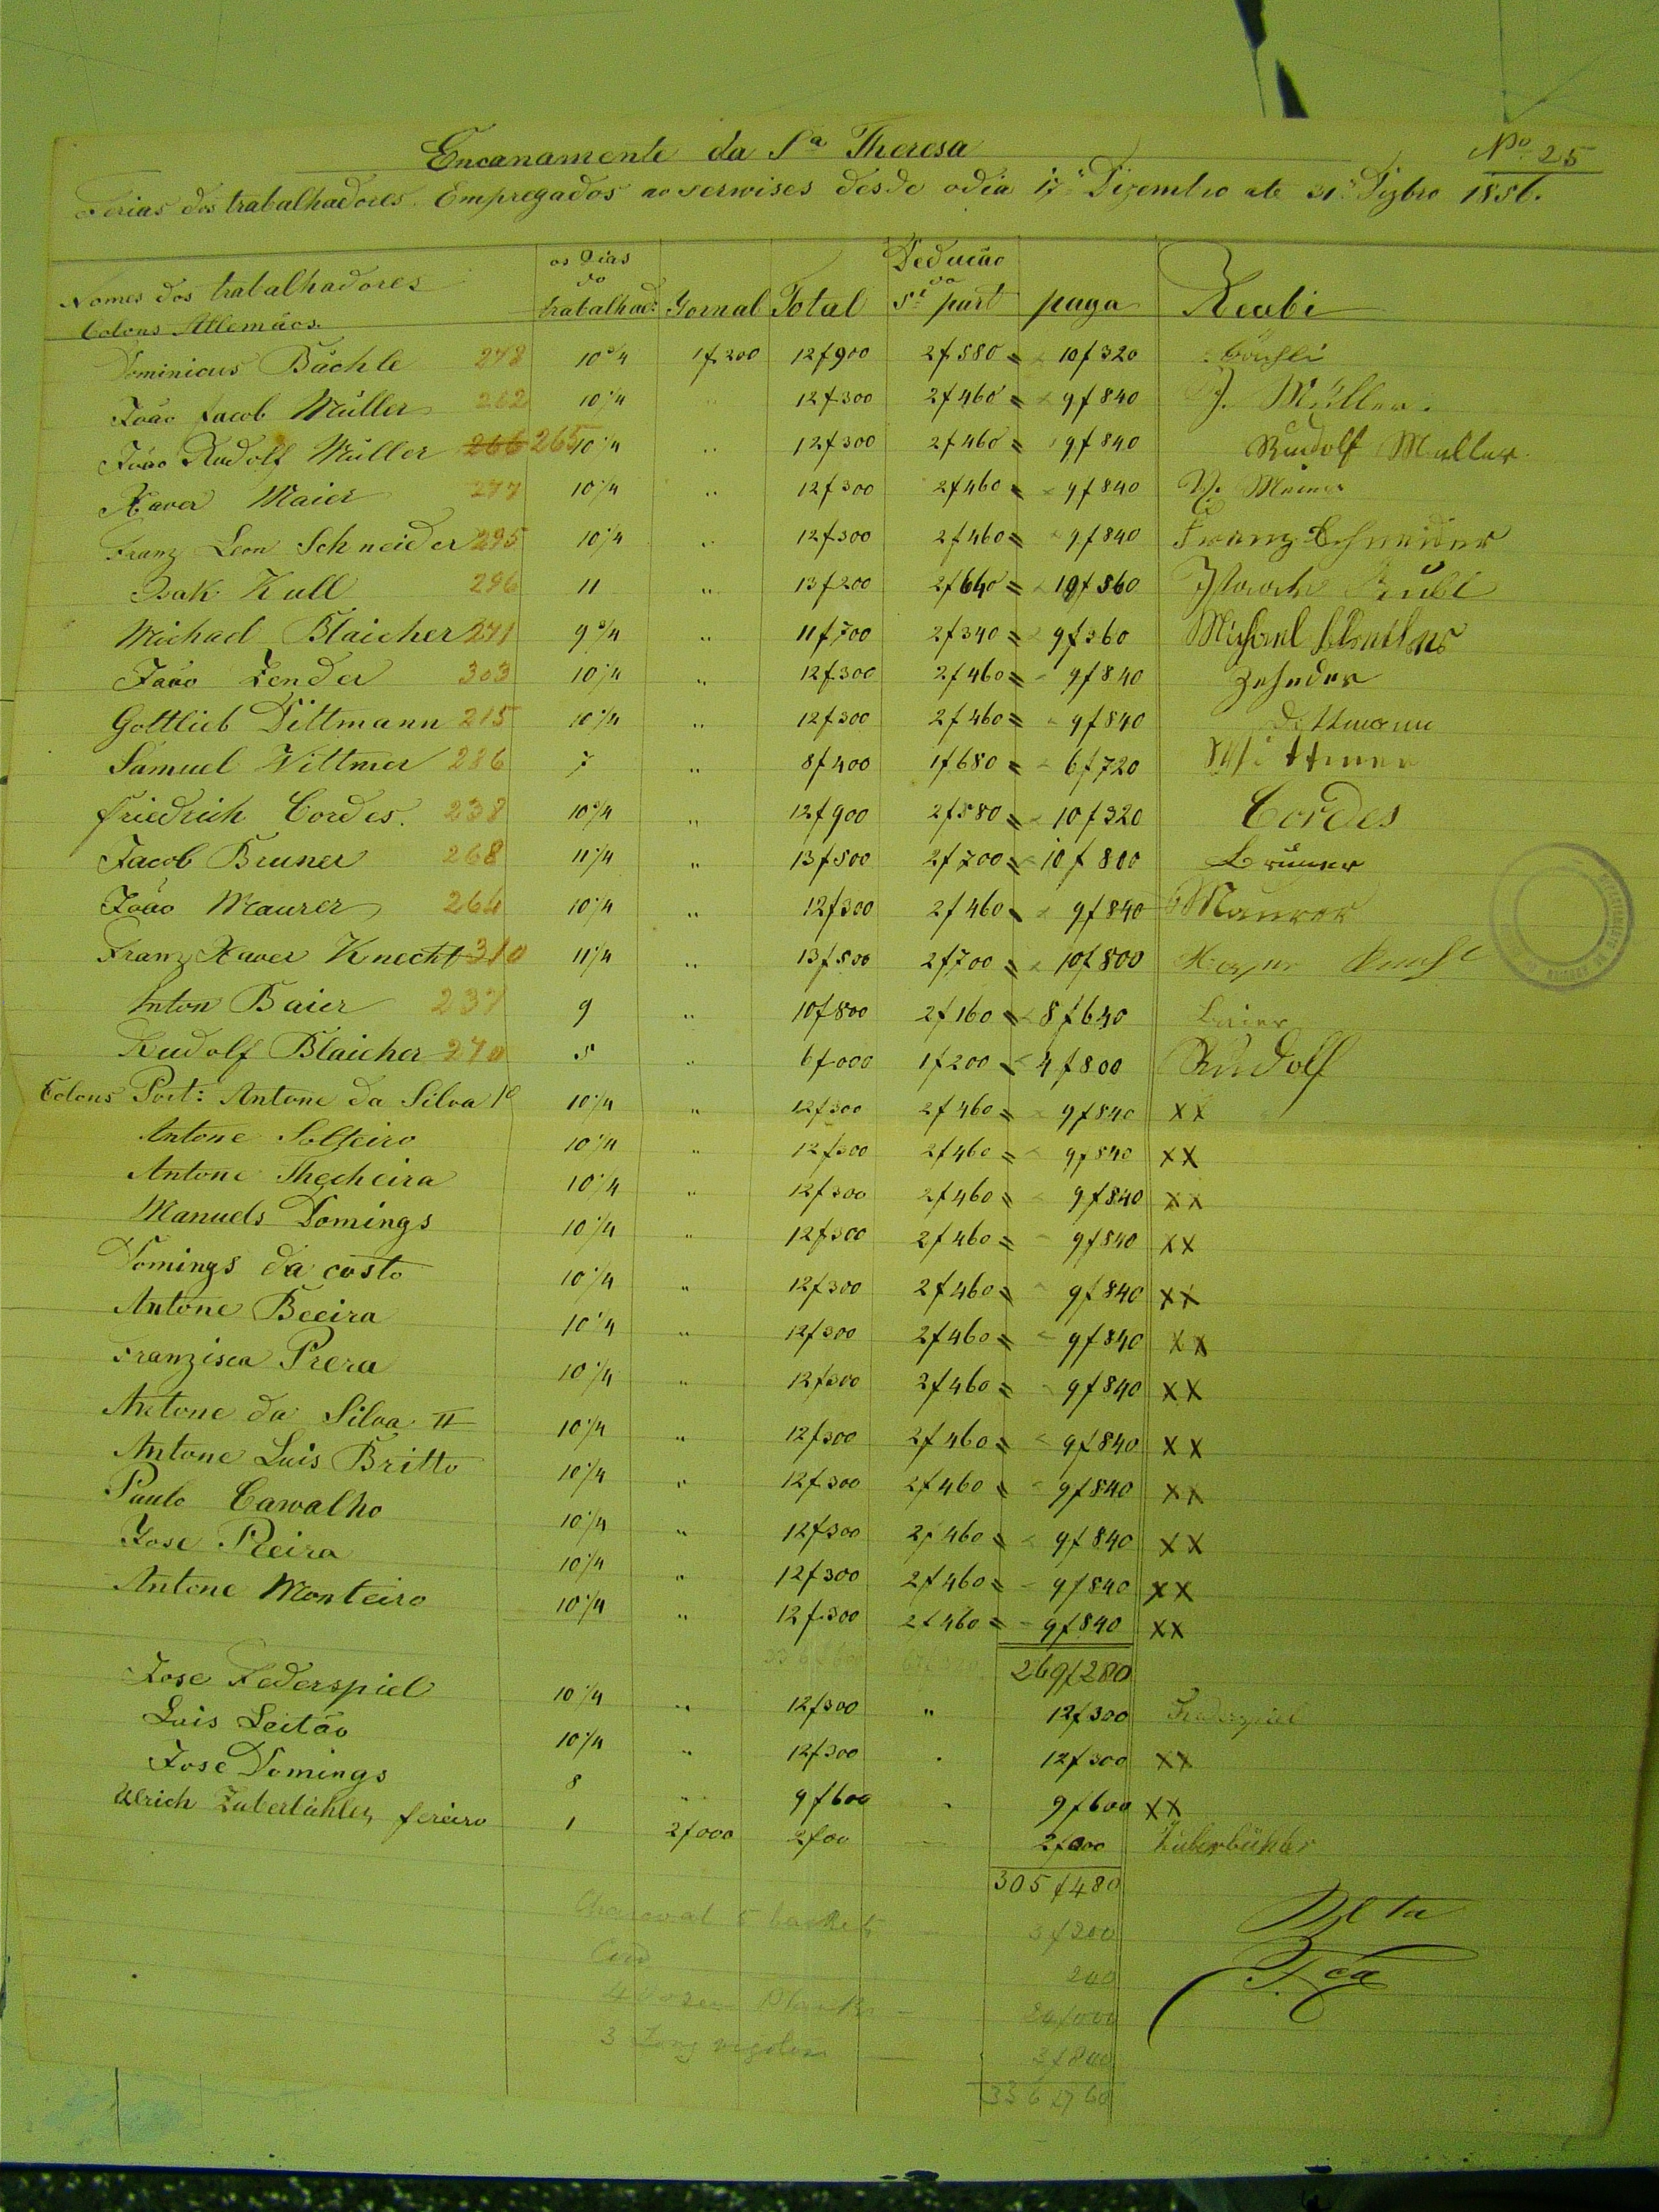 Encanamente da Sª Theresa
Nº 25
Ferias dos trabalhadores. Empregados ao serwises desde odia 17 Dizembro ate 31 Dizbro 1856.
Nomes dos trabalhadores os Dias do trabalhad: Jornal Total Deducão da 5ᵗ part paga Recebi
Colons Allemães.
Dominicus Bächle 278 10 3/4 1f200 12f900 2f580 = 10f320 Bächli
João Jacob Müller 262 10 1/4 " 12f300 2f460 = 9f840 J. Müller.
João Rudolf Müller 266 265 10 1/4 " 12f300 2f460 = 9f840 Rudolf Muller
Xaver Maier 277 10 1/4 " 12f300 2f460 = 9f840 X. Meier
Franz Leon Schneider 295 10 1/4 " 12f300 2f460 = 9f840 Franz Schneider
Isak Kull 296 11 " 13f200 2f640 = 10f560
Michael Blaicher 271 9 3/4 " 11f700 2f340 = 9f360 Michael
João Zender 303 10 1/4 " 12f300 2f460 = 9f840 Zehnder
Gottlieb Dittmann 215 10 1/4 " 12f300 2f460 = 9f840 Dittmann
Samuel Wittmer 286 7 " 8f400 1f680 = 6f720 Wittmer
Friedrich Cordes. 238 10 3/4 " 12f900 2f580 = 10f320 Cordes
Jacob Bruner 268 11 1/4 " 13f500 2f700 = 10f800 Bruner
João Maurer 264 10 1/4 " 12f300 2f460 = 9f840 Maurer
Franz Xaver Knecht 310 11 1/4 " 13f500 2f700 = 10f800
Anton Baier 237 9 " 10f800 2f160 = 8f640 Baier
Rudolf Blaicher 270 5 " 6f000 1f200 = 4f800 Rudolf
Colons Port: Antone da Silva 1º 10 1/4 " 12f300 2f460 = 9f840 XX
Antone Solteiro 10 1/4 " 12f300 2f460 = 9f840 XX
Antone Thecheira 10 1/4 " 12f300 2f460 = 9f840 XX
Manuels Domings 10 1/4 " 12f300 2f460 = 9f840 XX
Domings da costo 10 1/4 " 12f300 2f460 = 9f840 XX
Antone Beeira 10 1/4 " 12f300 2f460 = 9f840 XX
Franzisca Prera 10 1/4 " 12f300 2f460 = 9f840 XX
Antone da Silva II 10 1/4 " 12f300 2f460 = 9f840 XX
Antone Luis Britto 10 1/4 " 12f300 2f460 = 9f840 XX
Paulo Carvalho 10 1/4 " 12f300 2f460 = 9f840 XX
Jose Pieira 10 1/4 " 12f300 2f460 = 9f840 XX
Antone Monteiro 10 1/4 " 12f300 2f460 = 9f840 XX
269f280
Jose Federspiel 10 1/4 " 12f300 " 12f300 Federspiel
Luis Leitão 10 1/4 " 12f300 12f300 XX
Jose Domings 8 " 9f600 9f600 XX
Ulrich Zuberbühler, fereiro 1 2f000 2f00 2f000 Zuberbühler
305f480
Charcoal 5 baskets 3f200
200
4 Dozen Planks 24f000
3 Long 3f800
336f760